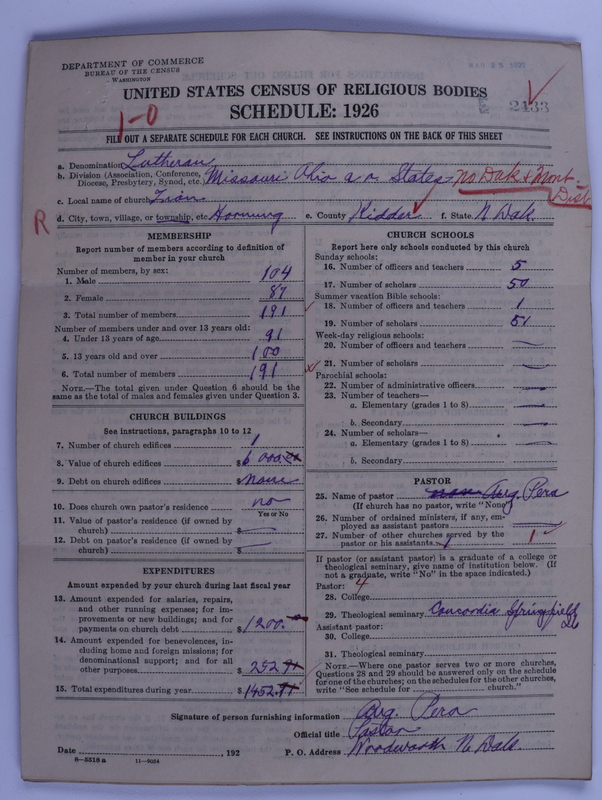 DEPARTMENT OF COMMERCE
BUREAU OF THE CENSUS
WASHINGTON
UNITED STATES CENSUS OF RELIGIOUS BODIES
SCHEDULE: 1926
2433
1-0
FILL OUT A SEPARATE SCHEDULE FOR EACH CHURCH. SEE INSTRUCTIONS ON THE BACK OF THIS SHEET
a. Denomination Lutheran
b. Division (Association, Conference, Diocese, Presbytery, Synod, etc.) Missouri Ohio a. o. States No Dak & Mont. Dist
c. Local name of church Zion
R
d. City, town, village, or township, etc. Hornung e. County Kidder f. State N Dak.
MEMBERSHIP
Report number of members according to definition of
member in your church
Number of members, by sex:
1. Male 104
2. Female 87
3. Total number of members 191
Number of members under and over 13 years old:
4. Under 13 years of age 91
5. 13 years old and over 100
6. Total number of members 191
NOTE.—The total given under Question 6 should be
same as the total of males and females given under Question 3.
CHURCH BUILDINGS
See instructions, paragraphs 10 to 12
7. Number of church edifices 1
8. Value of church edifices $6000
9. Debt on church edifices $None
10. Does church own pastor's residence no
Yes or No
11. Value of pastor's residence (if owned by
church) $
12. Debt on pastor's residence (if owned by
church) $
EXPENDITURES
Amount expended by your church during last fiscal year
13. Amount expended for salaries, repairs,
and other running expenses; for im-
provements or new buildings; and for
payments on church debt $1200.
14. Amount expended for benevolences, in-
cluding home and foreign missions; for
denominational support; and for all
other purposes $252
15. Total expenditures during year $1452
CHURCH SCHOOLS
Report here only schools conducted by this church
Sunday schools:
16. Number of officers and teachers 5
17. Number of scholars 50
Summer vacation Bible schools:
18. Number of officers and teachers 1
19. Number of scholars 51
Week-day religious schools:
20. Number of officers and teachers
21. Number of scholars
Parochial schools:
22. Number of administrative officers
23. Number of teachers—
a. Elementary (grades 1 to 8)
b. Secondary
24. Number of scholars—
a. Elementary (grades 1 to 8)
b. Secondary
PASTOR
25. Name of pastor none Aug. Pera
(If church has no pastor, write "None")
26. Number of ordained ministers, if any, em-
ployed as assistant pastors
27. Number of other churches served by the
pastor or his assistants 1
If pastor (or assistant pastor) is a graduate of a college or
theological seminary, give name of institution below. (If
not a graduate, write "No" in the space indicated.)
Pastor: 4
28. College
29. Theological seminary Concordia Springfield
Assistant pastor:
30. College
31. Theological seminary
NOTE.—Where one pastor serves two or more churches,
Questions 28 and 29 should be answered only on the schedule
for one of the churches; on the schedules for the other churches,
write "See schedule for church."
Signature of person furnishing information Aug. Pera
Official title Pastor
Date , 192 P. O. Address Woodworth N. Dak.
8—5518 a 11—9024